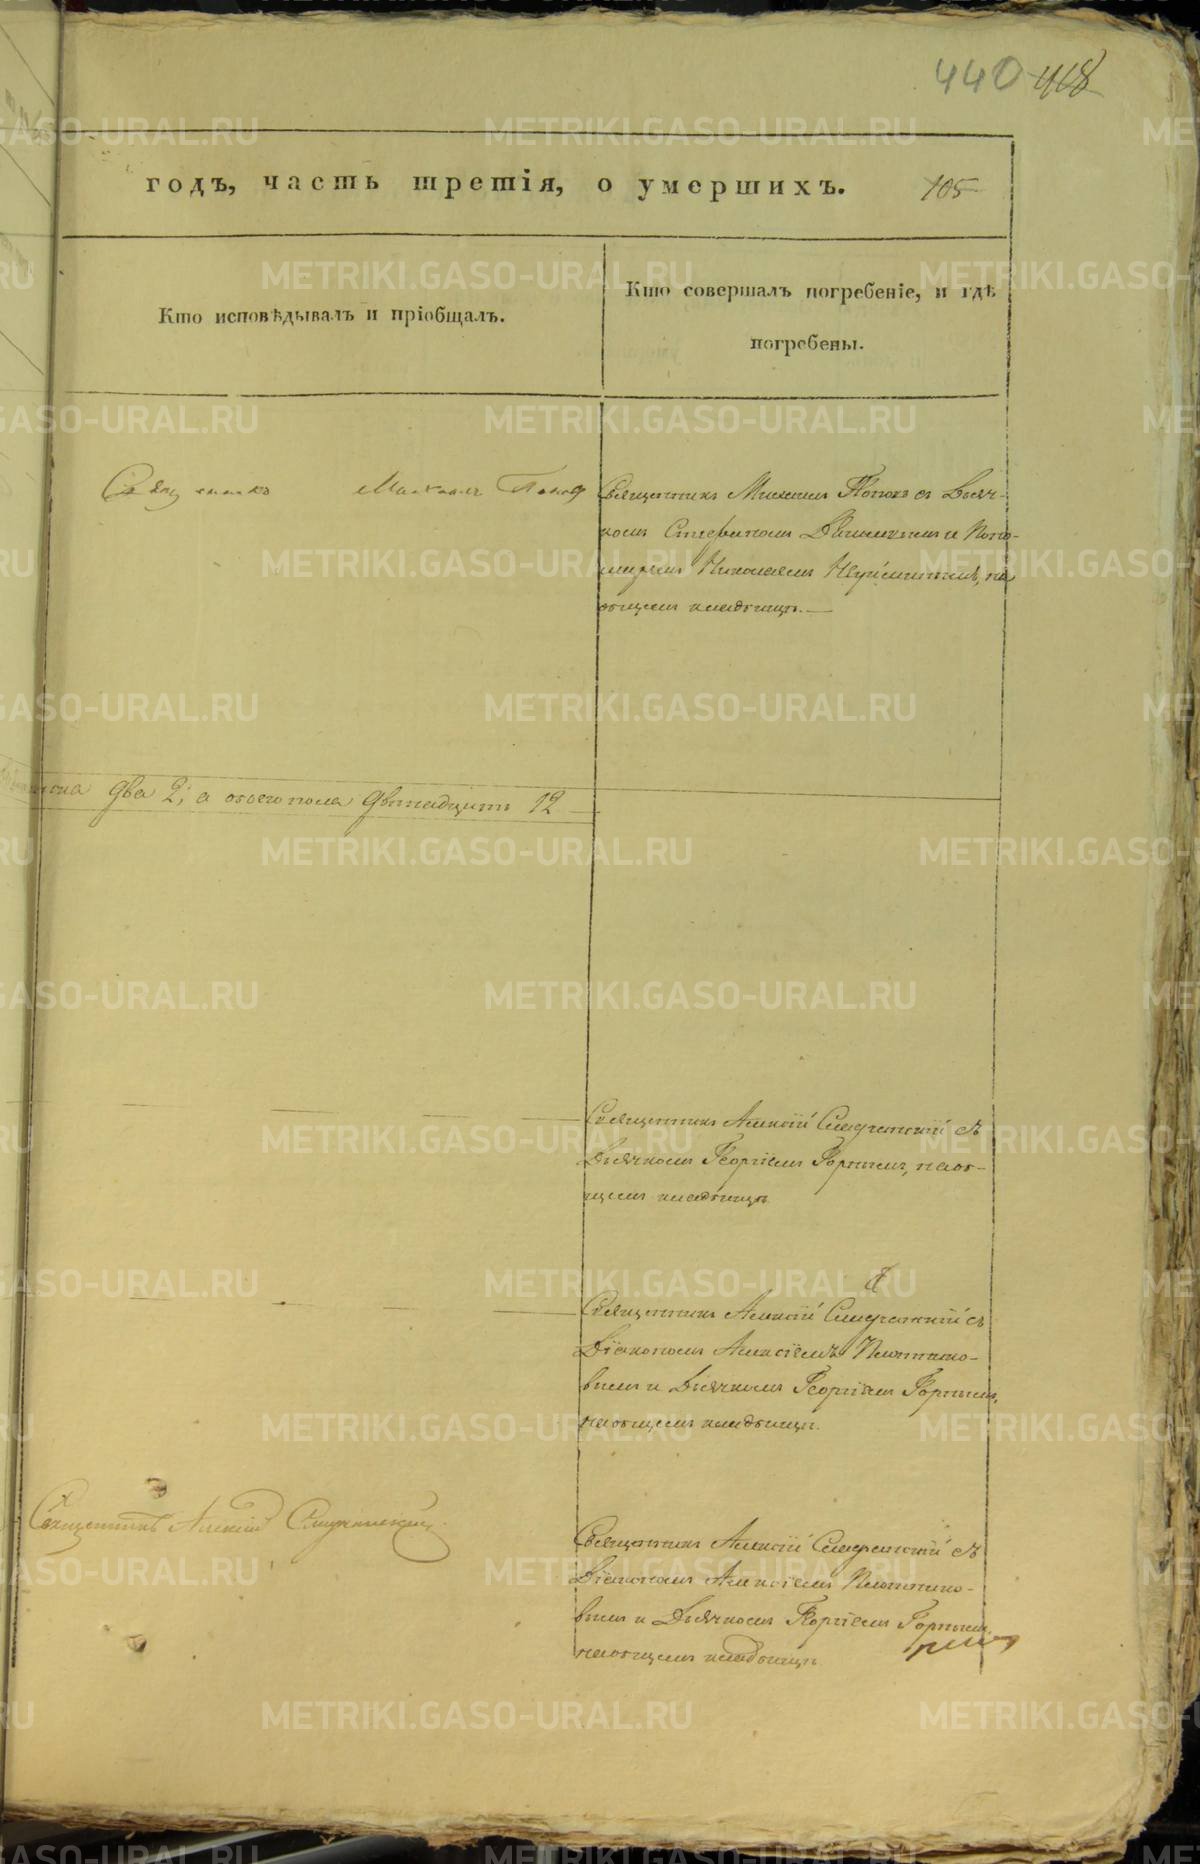 440 418
годъ, часть третія, о умершихъ. 105
Кто исповѣдывалъ и пріобщалъ.
Кто совершалъ погребеніе, и гдѣ
погребены.
Священникъ Михаилъ Поповъ
Священникъ Михаилъ Поповъ съ Дьяч-
комъ Стефаномъ и Поно-
маремъ Николаемъ на
общемъ кладбищѣ.
пола два 2; а обоего пола двенадцать 12
Священникъ Алексій съ
Дьячкомъ Георгіемъ Горнымъ, на об-
щемъ кладбищѣ
Священникъ Алексій съ
Діакономъ Алексіемъ Плотнико-
вымъ и Дьячкомъ Георгіемъ Горнымъ,
на общемъ кладбищѣ.
Священникъ Алексій
Священникъ Алексій съ
Діакономъ Алексіемъ Плотнико-
вымъ и Дьячкомъ Георгіемъ Горнымъ
на общемъ кладбищѣ
METRIKI.GASO-URAL.RU